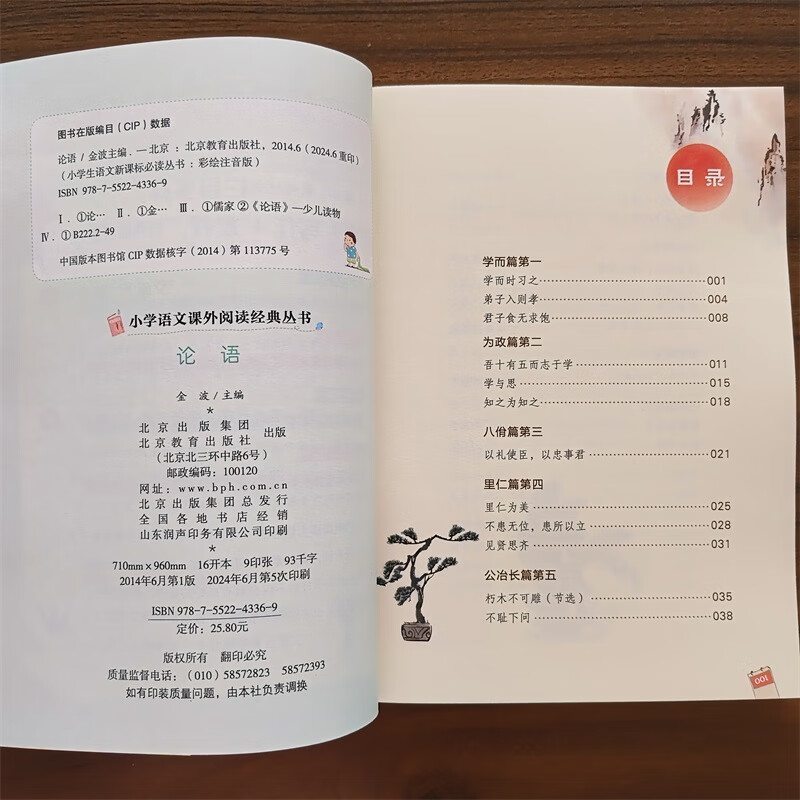 图书在版编目（CIP）数据
论语 / 金波主编. —北京 : 北京教育出版社, 2014.6（2024.6 重印）
（小学生语文新课标必读丛书 : 彩绘注音版）
ISBN 978-7-5522-4336-9
Ⅰ. ①论… Ⅱ. ①金… Ⅲ. ①儒家 ②《论语》—少儿读物
Ⅳ. ① B222.2-49
中国版本图书馆 CIP 数据核字（2014）第 113775 号
小学语文课外阅读经典丛书
论 语
金 波 / 主编
*
北京出版集团
北京教育出版社
出版
（北京北三环中路6号）
邮政编码：100120
网址：www.bph.com.cn
北京出版集团总发行
全国各地书店经销
山东润声印务有限公司印刷
*
710mm×960mm 16开本 9印张 93千字
2014年6月第1版 2024年6月第5次印刷
ISBN 978-7-5522-4336-9
定价：25.80元
版权所有 翻印必究
质量监督电话：（010）58572823 58572393
如有印装质量问题，由本社负责调换
目录
学而篇第一
学而时习之……001
弟子入则孝……004
君子食无求饱……008
为政篇第二
吾十有五而志于学……011
学与思……015
知之为知之……018
八佾篇第三
以礼使臣，以忠事君……021
里仁篇第四
里仁为美……025
不患无位，患所以立……028
见贤思齐……031
公冶长篇第五
朽木不可雕（节选）……035
不耻下问……038
001